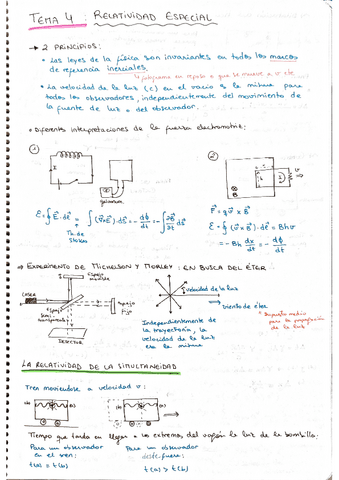 TEMA 4 : RELATIVIDAD ESPECIAL
→ 2 PRINCIPIOS:
• Las leyes de la física son invariantes en todos los marcos
de referencia inerciales.
en reposo o que se mueve a v cte
• La velocidad de la luz (c) en el vacío es la misma para
todos los observadores, independientemente del movimiento de
la fuente de luz o del observador.
• Diferentes interpretaciones de la fuerza electromotriz:
① ②
ℰ = ∮ E⃗·dℓ⃗ = ∫ (∇⃗×E⃗)·ds⃗ = - dϕ/dt = - ∫ ∂B⃗/∂t ds⃗
Th. de
Stokes
F⃗ = q v⃗ × B⃗
ℰ = ∮ (v⃗×B⃗)·dℓ⃗ = Bhv
= - Bh dx/dt = - dϕ/dt
→ EXPERIMENTO DE MICHELSON Y MORLEY : EN BUSCA DEL ÉTER
Espejo
LÁSER
Espejo
fijo
Espejo
semi
transparente
DETECTOR
Velocidad de la luz
Viento de éter
Independientemente de
la trayectoria, la
velocidad de la luz
era la misma
* Supuesto medio
para la propagación
de la luz
LA RELATIVIDAD DE LA SIMULTANEIDAD
Tren moviéndose a velocidad v :
(a) (b) (a) (b)
Tiempo que tarda en llegar a los extremos del vagón la luz de la bombilla:
Para un observador
en el tren:
t(a) = t(b)
Para un observador
desde fuera:
t(a) > t(b)